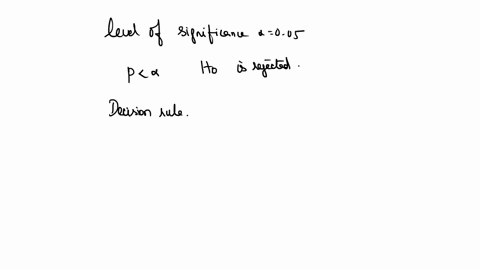 level of significance α=0.05
P<α H0 is rejected.
Decision rule.